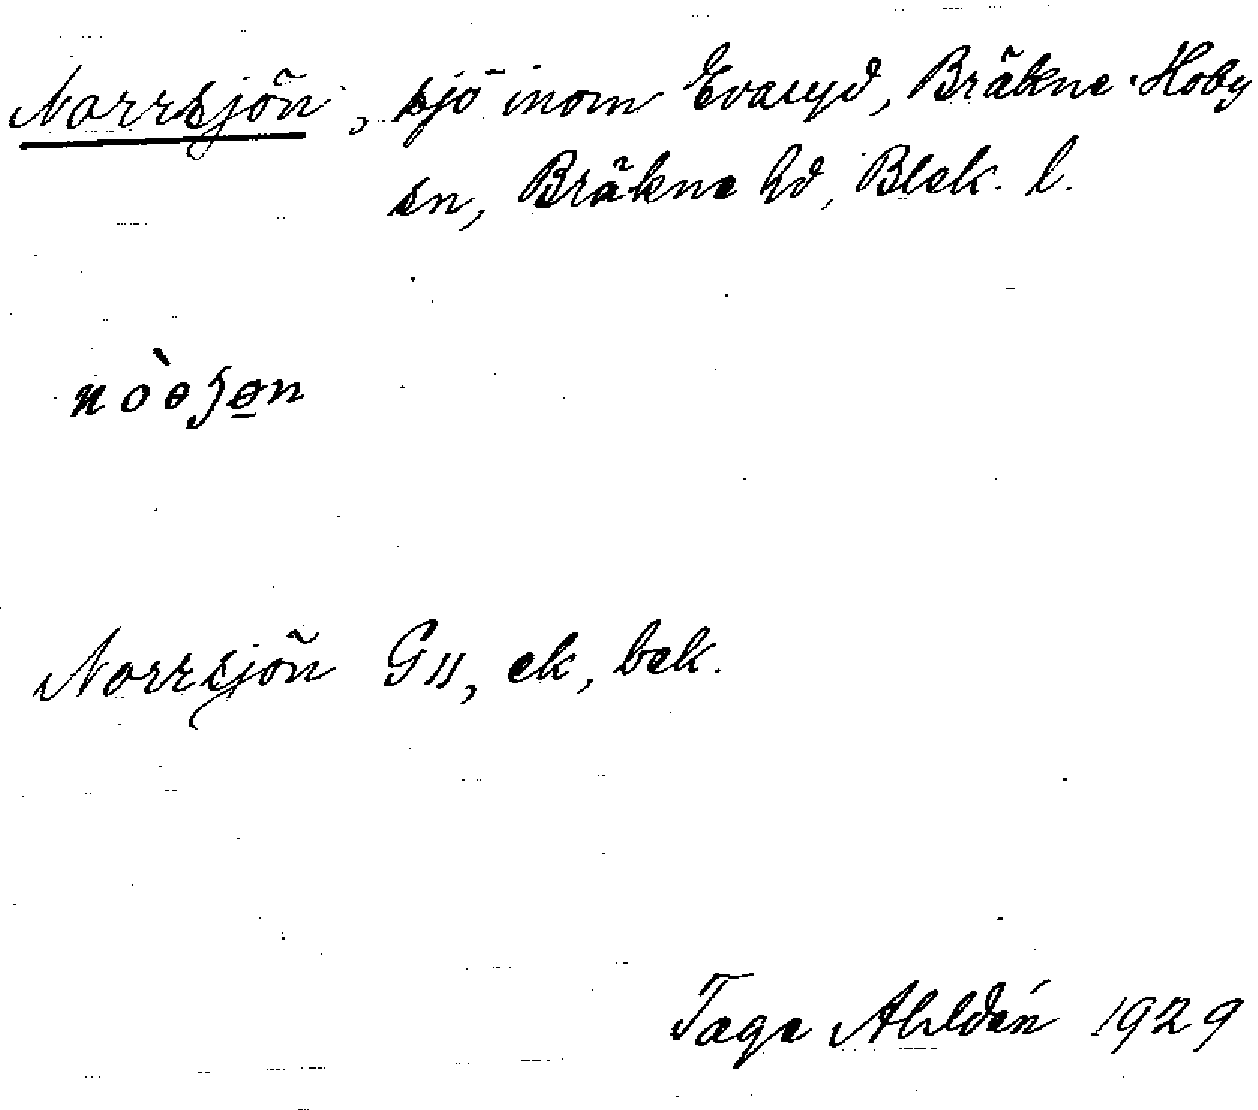 Norrsjön, sjö inom Evaryd, Bräkne-Hoby
sn, Bräkne hd, Blek. l.
nòəʃø̲n
Norrsjön G11, ek, bek.
Tage Ahldén 1929